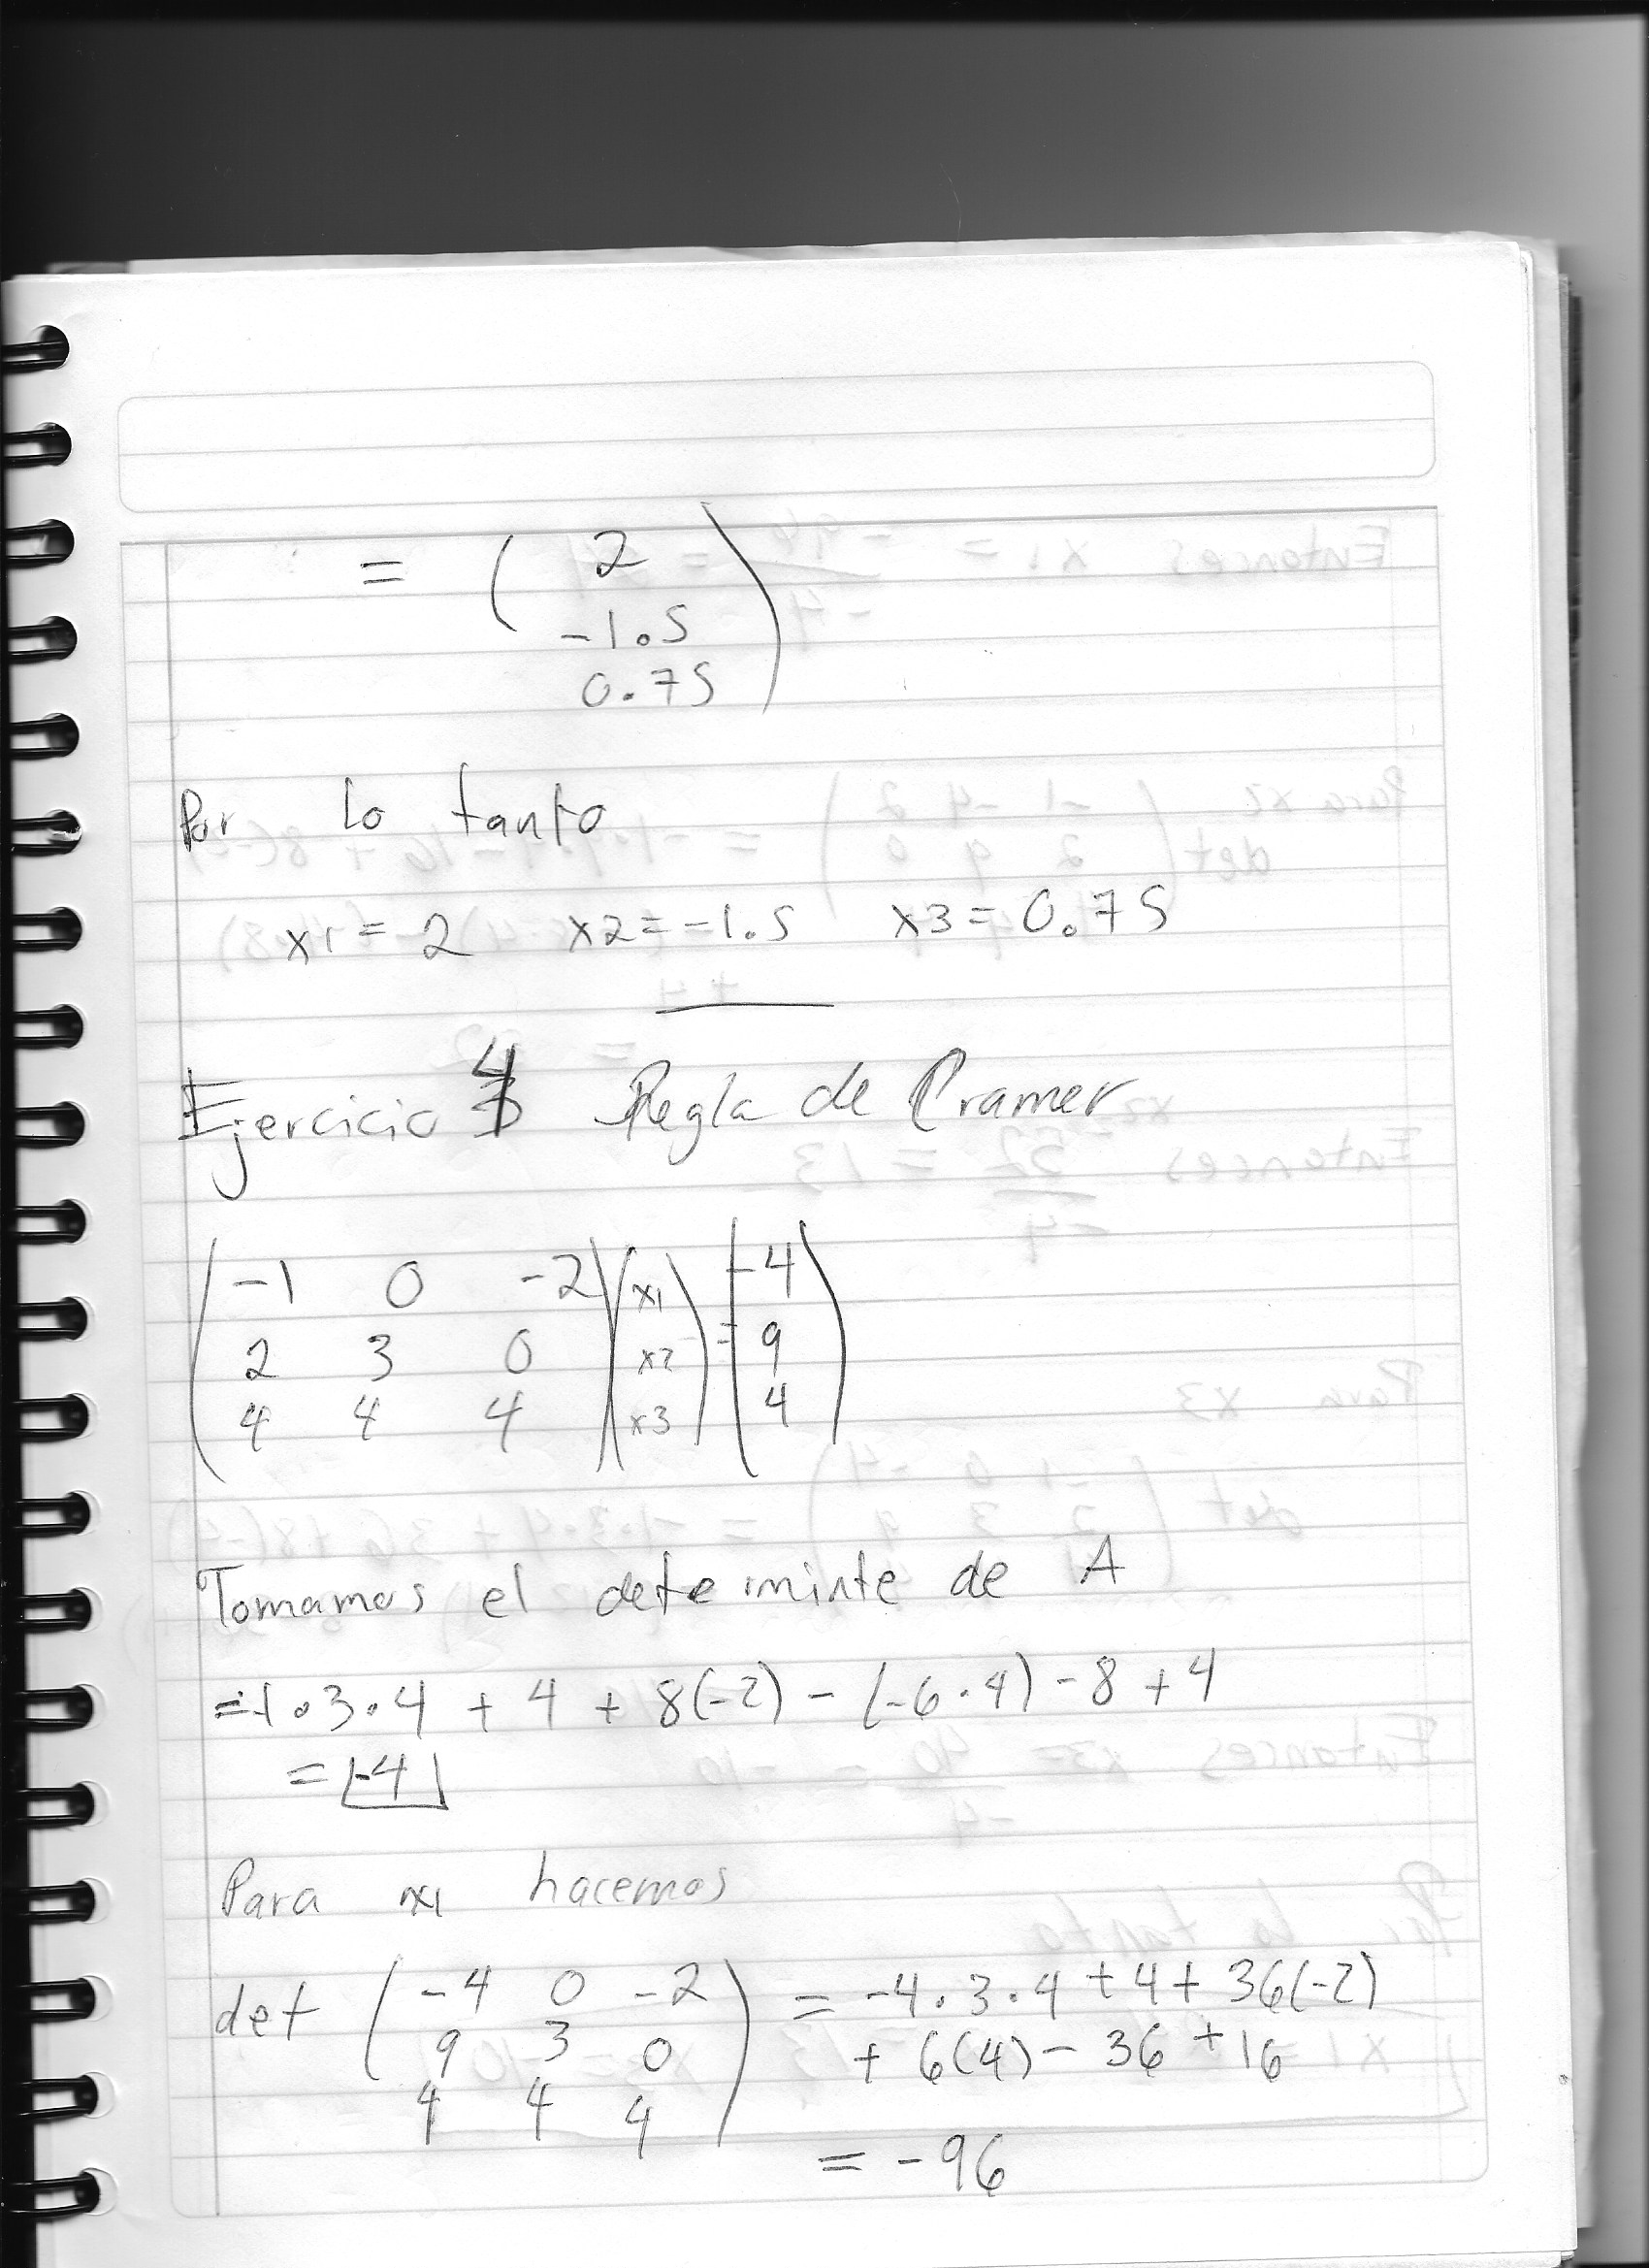 = ( 2
-1.5
0.75 )
Por lo tanto
x1 = 2 x2 = -1.5 x3 = 0.75
Ejercicio 4 Regla de Cramer
( -1 0 -2 ) ( x1 ) ( -4 )
2 3 0 x2 = 9
4 4 4 x3 4
Tomamos el determinte de A
= -1 · 3 · 4 + 4 + 8(-2) - (-6 · 4) - 8 + 4
= -4
Para x1 hacemos
det ( -4 0 -2 ) = -4 · 3 · 4 + 4 + 36(-2)
9 3 0 + 6(4) - 36 + 16
4 4 4
= -96